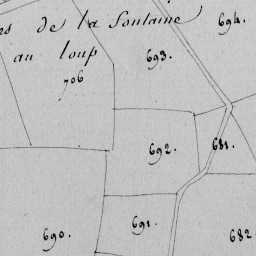 rs de la Fontaine
694.
au loup
693.
706
692.
681.
691.
690.
682